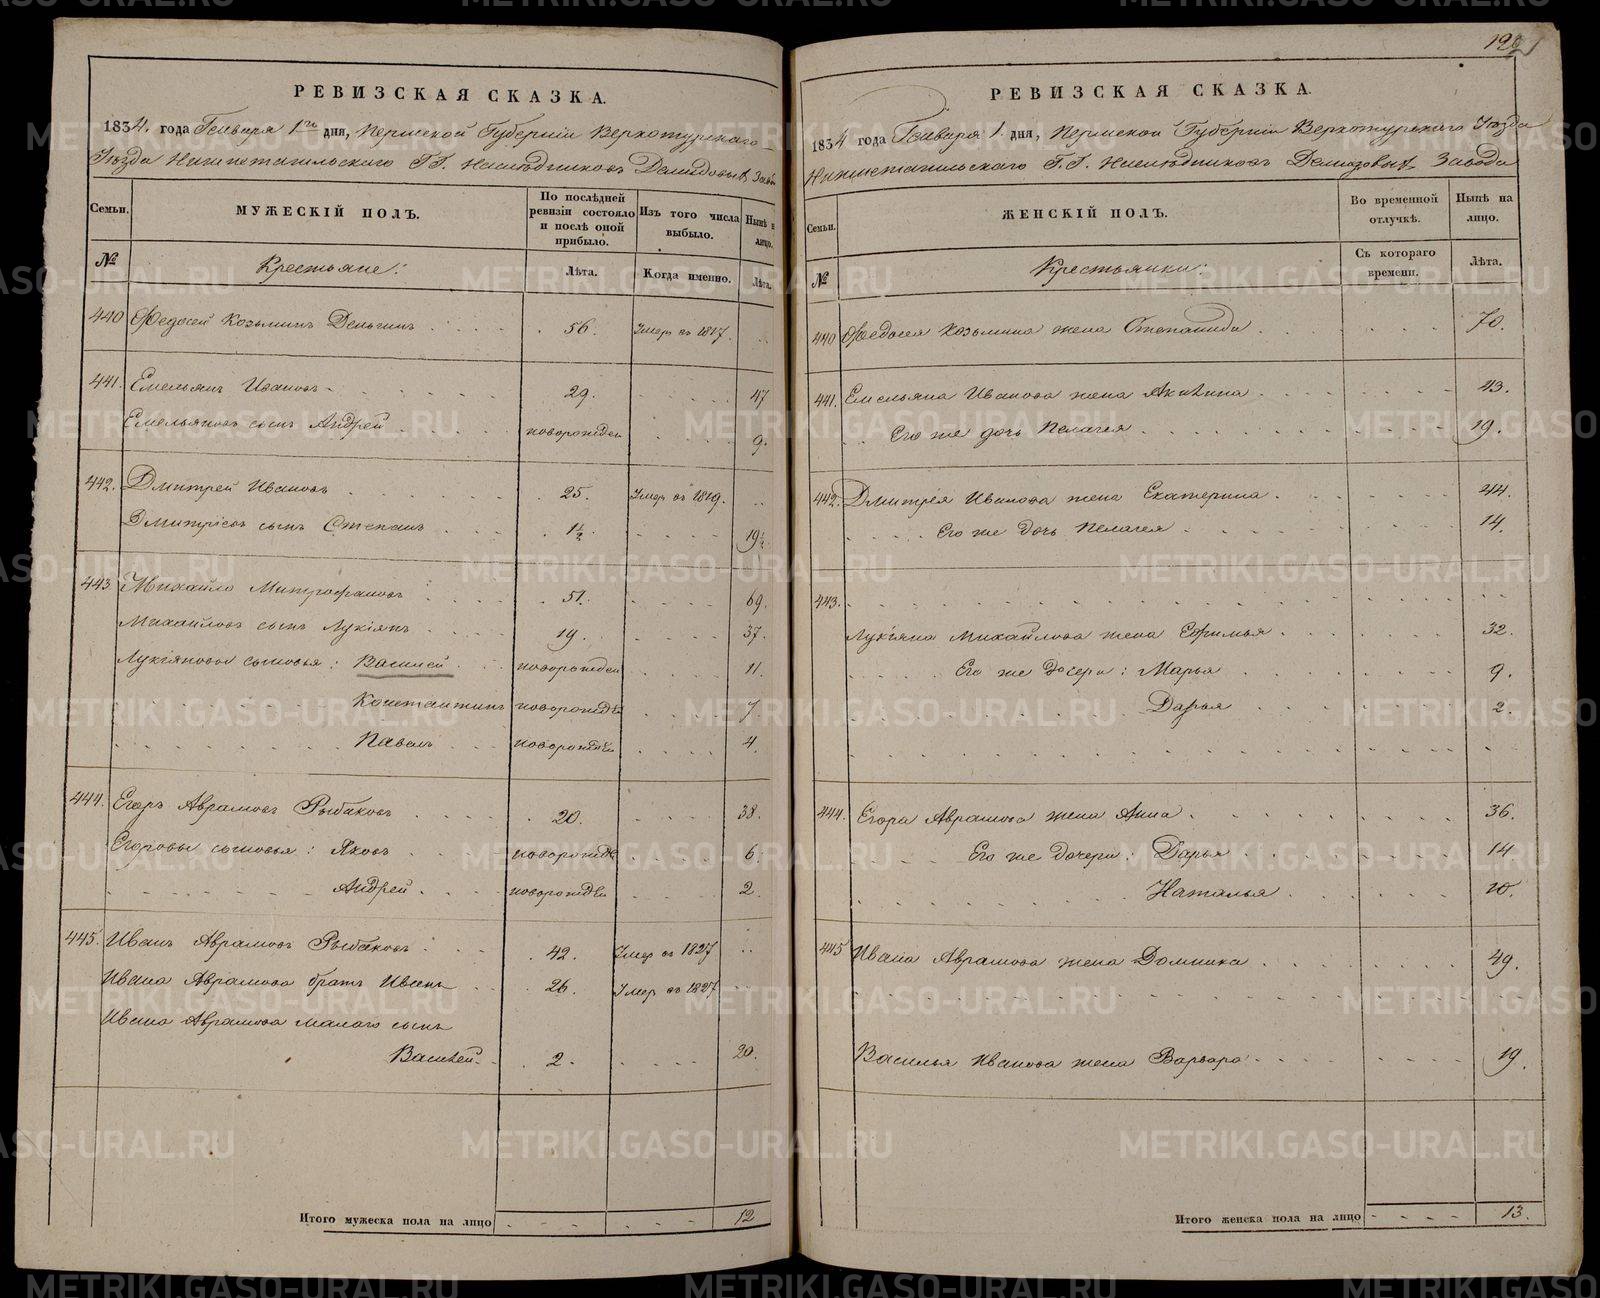 РЕВИЗСКАЯ СКАЗКА.
1834. года Генваря 1го дня, Пермской Губерніи Верхотурскаго
Уѣзда Нижнетагильскаго Г.Г. Наслѣдниковъ Демидовыхъ Заво
Семьи. МУЖЕСКІЙ ПОЛЪ. По послѣдней ревизіи состояло и послѣ оной прибыло. Изъ того числа выбыло. Нынѣ на лицо.
№ Крестьяне: Лѣта. Когда именно. Лѣта.
440 Федосей Козьминъ 56. Умеръ въ 1817.
441. Емельянъ Ивановъ 29. 47
Емельяновъ сынъ Андрей новорожден 9.
442. Дмитрей Ивановъ 25. Умер въ 1819.
Дмитріевъ сынъ Степанъ 1½ 19½
443 Михайло Митрофановъ 51. 69.
Михайловъ сынъ Лукіянъ 19. 37.
Лукіяновы сыновья: Василей новорожден 11.
Констянтинъ новорожде 7.
Павелъ новорожде 4.
444. Егоръ Аврамовъ Рыбаковъ 20. 38.
Егоровы сыновья: Яковъ новорожде 6.
Андрей новорожде 2.
445. Иванъ Аврамовъ Рыбаковъ 42. Умер въ 1827
Ивана Аврамова братъ Иванъ 26. Умер въ 1827
Ивана Аврамова малаго сынъ
Василей 2. 20.
Итого мужеска пола на лицо 12
РЕВИЗСКАЯ СКАЗКА.
1834 года Генваря 1. дня, Пермской Губерніи Верхотурскаго Уѣзда
Нижнетагильскаго Г.Г. Наслѣдниковъ Демидовыхъ Завода
Семьи. ЖЕНСКІЙ ПОЛЪ. Во временной отлучкѣ. Нынѣ на лицо.
№ Крестьянки: Съ котораго времени. Лѣта.
440 Федосея Козьмина жена Степанида 70.
441. Емельяна Иванова жена Акилина 43.
Его же дочь Пелагея 19.
442. Дмитрея Иванова жена Екатерина 44.
Его же дочь Пелагея 14.
443.
Лукіяна Михайлова жена Ефимья 32.
Его же дочери: Марья 9.
Дарья 2.
444. Егора Аврамова жена Анна 36.
Его же дочери: Дарья 14
Наталья 10.
445 Ивана Аврамова жена Домника 49.
Василья Иванова жена Варвара 19.
Итого женска пола на лицо 13.
METRIKI.GASO-URAL.RU